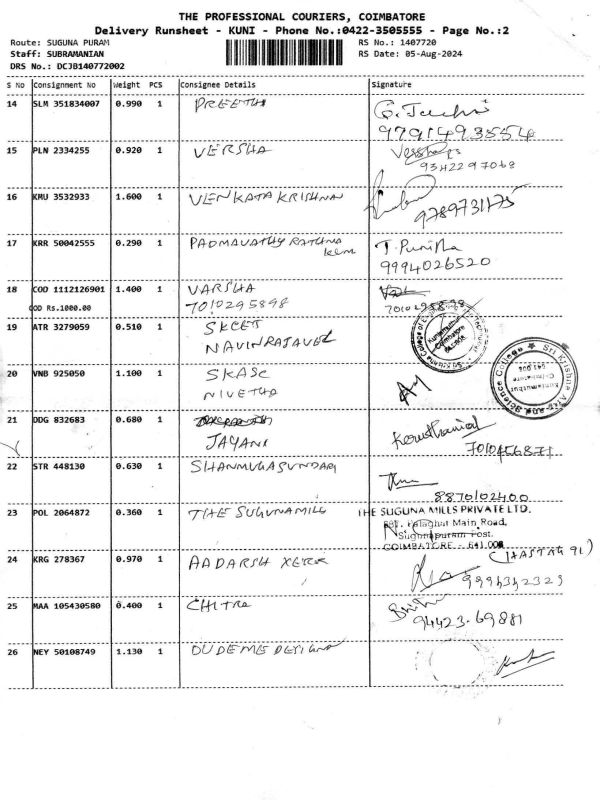 THE PROFESSIONAL COURIERS, COIMBATORE
Delivery Runsheet - KUNI - Phone No.:0422-3505555 - Page No.:2
Route: SUGUNA PURAM RS No.: 1407720
Staff: SUBRAMANIAN RS Date: 05-Aug-2024
DRS No.: DCJB140772002
S No Consignment No Weight PCS Consignee Details Signature
14 SLM 351834007 0.990 1 PREETHI
9791493554
15 PLN 2334255 0.920 1 VERSHA
9342297068
16 KMU 3532933 1.600 1 VENKATA KRISHNAN
9789731175
17 KRR 50042555 0.290 1 PADMAVATHY RATHNA
9994026520
18 COD 1112126901 1.400 1 VARSHA
COD Rs.1000.00 7010295898 7010295898
19 ATR 3279059 0.510 1 SKCET
NAVINRAJAVEL
20 VNB 925050 1.100 1 SKASC
NIVETHA
Sri Krishna Arts and Science College
Kuniamuthur
Coimbatore
641 008
21 DDG 832683 0.680 1
JAYANI
7010456871
22 STR 448130 0.630 1 SHANMUGASUNDARI
8870102400
23 POL 2064872 0.360 1 THE SUGUNA MILL THE SUGUNA MILLS PRIVATE LTD.
Palaghat Main Road,
Sugunapuram Post,
COIMBATORE - 641 008
24 KRG 278367 0.970 1 AADARSH XEROX
9994342329
25 MAA 105430580 0.400 1 CHITRA
94423-69881
26 NEY 50108749 1.130 1 DUDEME DESIGNS